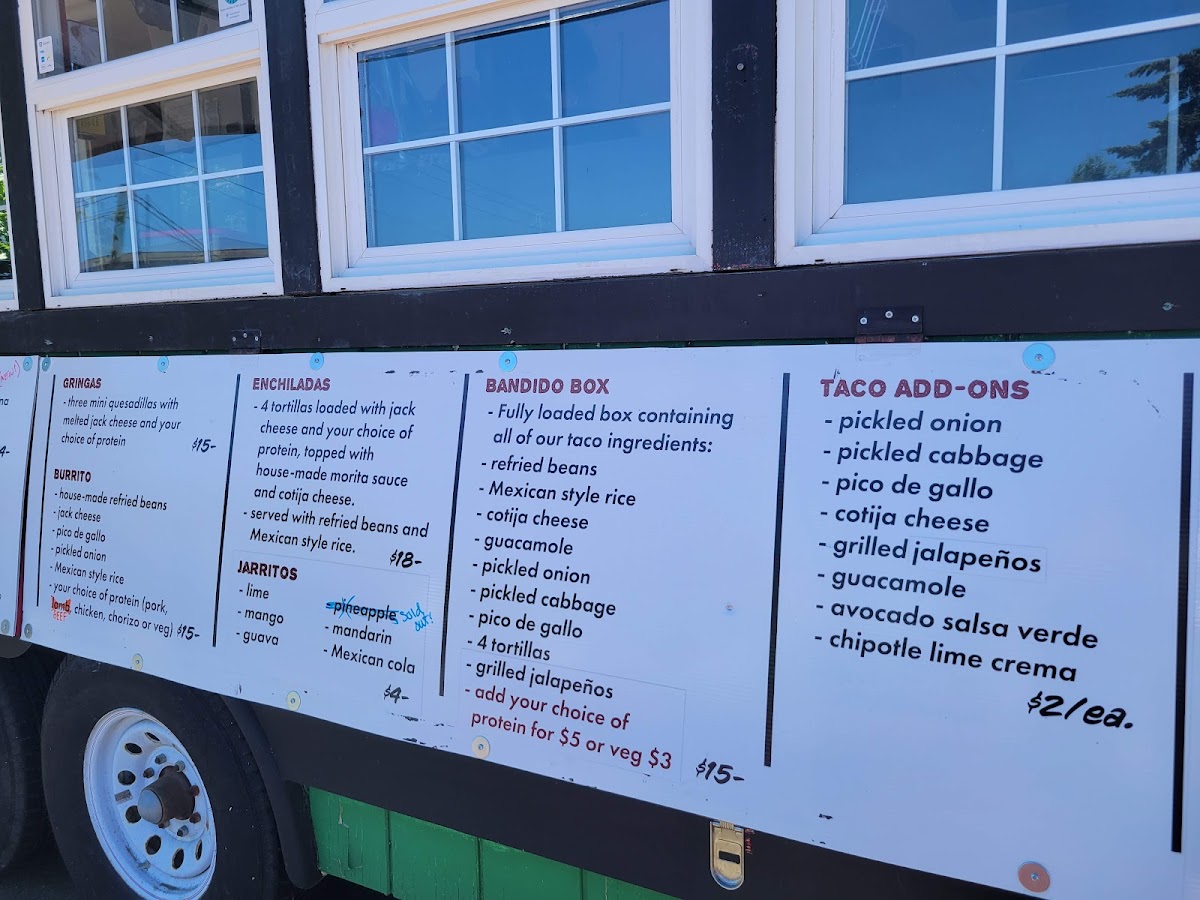 GRINGAS
- three mini quesadillas with
melted jack cheese and your
choice of protein
$15-
BURRITO
- house-made refried beans
- jack cheese
- pico de gallo
- pickled onion
- Mexican style rice
- your choice of protein (pork,
BEEF, chicken, chorizo or veg) $15-
ENCHILADAS
- 4 tortillas loaded with jack
cheese and your choice of
protein, topped with
house-made morita sauce
and cotija cheese.
- served with refried beans and
Mexican style rice.
$18-
JARRITOS
- lime
- mango
- guava
- pineapple sold out!
- mandarin
- Mexican cola
$4-
BANDIDO BOX
- Fully loaded box containing
all of our taco ingredients:
- refried beans
- Mexican style rice
- cotija cheese
- guacamole
- pickled onion
- pickled cabbage
- pico de gallo
- 4 tortillas
- grilled jalapeños
- add your choice of
protein for $5 or veg $3
$15-
TACO ADD-ONS
- pickled onion
- pickled cabbage
- pico de gallo
- cotija cheese
- grilled jalapeños
- guacamole
- avocado salsa verde
- chipotle lime crema
$2/ea.